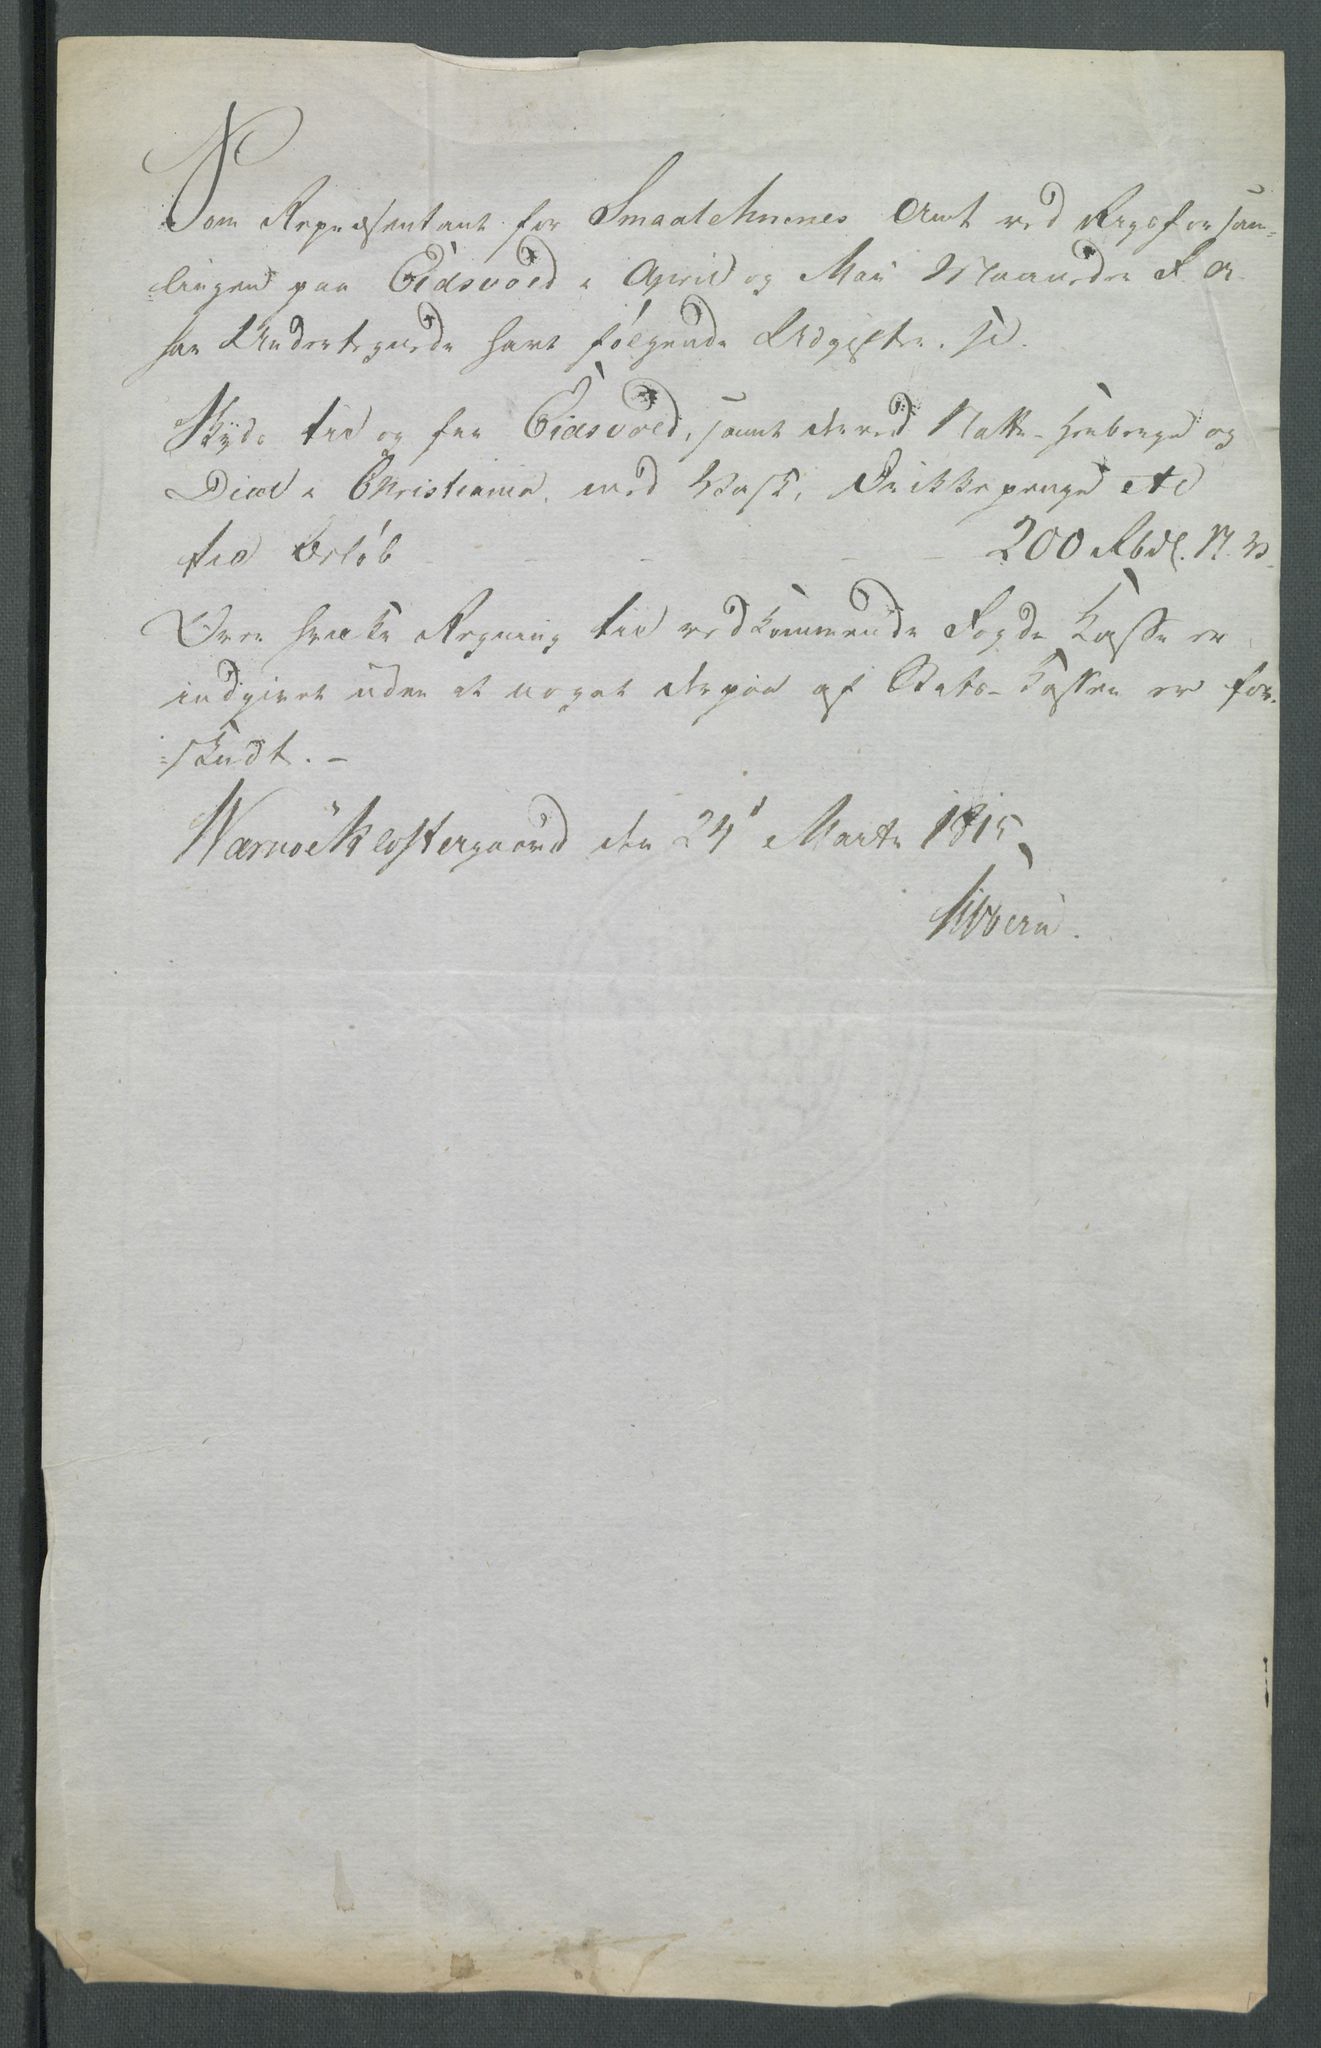 Som Repræsentant for Smaalehnenes Amt ved Rigsforsam-
lingen paa Eidsvold i April og Mai Maaneder F. A.
har Undertegnede havt følgende Udgifter, sc.
Skyds til og fra Eidsvold, samt derved Natte-Herberge og
Diæt i Christiania, med Vask, Drikkepenge etc
til Beløb - - - - 200 Rbdl. N. V.
Over hvilke Regning til vedkommende Fogde Casse er
indgivet uden at noget derpaa af Stats-Cassen er for-
skudt. -
Wærnøe Klostergaard den 24d Marts 1815
Sibbern.